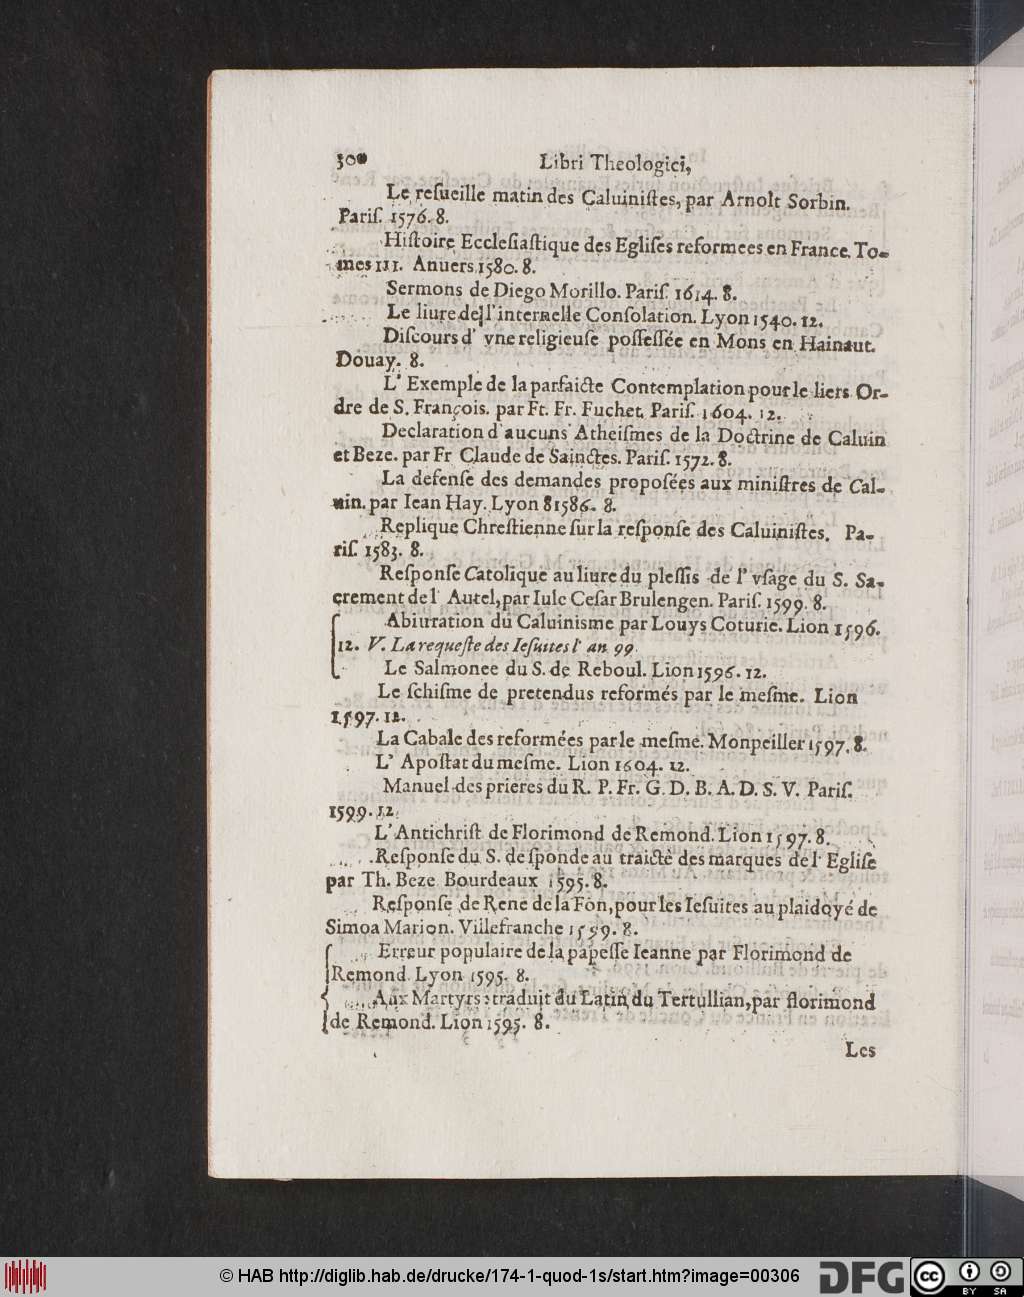 300 Libri Theologici,
Le reſueille matin des Caluiniſtes, par Arnolt Sorbin.
Pariſ. 1576. 8.
Hiſtoire Eccleſiaſtique des Egliſes reformees en France. To-
mes III. Anuers 1580. 8.
Sermons de Diego Morillo. Pariſ. 1614. 8.
Le liure de l'internelle Conſolation. Lyon 1540. 12.
Diſcours d' vne religieuſe poſſeſſée en Mons en Hainaut.
Douay. 8.
L' Exemple de la parfaicte Contemplation pour le liers Or-
dre de S. François. par Ft. Fr. Fuchet. Pariſ. 1604. 12.
Declaration d'aucuns Atheiſmes de la Doctrine de Caluin
et Beze. par Fr Claude de Sainctes. Pariſ. 1572. 8.
La defenſe des demandes propoſées aux miniſtres de Cal-
uin. par Iean Hay. Lyon 81586. 8.
Replique Chreſtienne ſur la reſponſe des Caluiniſtes. Pa-
riſ. 1583. 8.
Reſponſe Catolique au liure du pleſſis de l' vſage du S. Sa-
crement de l' Autel, par Iule Ceſar Brulengen. Pariſ. 1599. 8.
Abiuration du Caluinisme par Louys Coturie. Lion 1596.
12. V. La requeſte des Ieſuites l' an 99.
Le Salmonee du S. de Reboul. Lion 1596. 12.
Le ſchiſme de pretendus reformés par le meſme. Lion
1597. 12.
La Cabale des reformées par le meſme. Monpeiller 1597. 8.
L' Apoſtat du meſme. Lion 1604. 12.
Manuel des prieres du R. P. Fr. G. D. B. A. D. S. V. Pariſ.
1599. 12.
L'Antichriſt de Florimond de Remond. Lion 1597. 8.
Reſponſe du S. de ſponde au traictè des marques de l' Egliſe
par Th. Beze Bourdeaux 1595. 8.
Reſponſe de Rene de la Fon, pour les Ieſuites au plaidoyé de
Simoa Marion. Villefranche 1599. 8.
Erreur populaire de la papeſſe Ieanne par Florimond de
Remond. Lyon 1595. 8.
Aux Martyrs: traduit du Latin du Tertullian, par florimond
de Remond. Lion 1595. 8.
Les
© HAB http://diglib.hab.de/drucke/174-1-quod-1s/start.htm?image=00306
DFG
cc BY SA